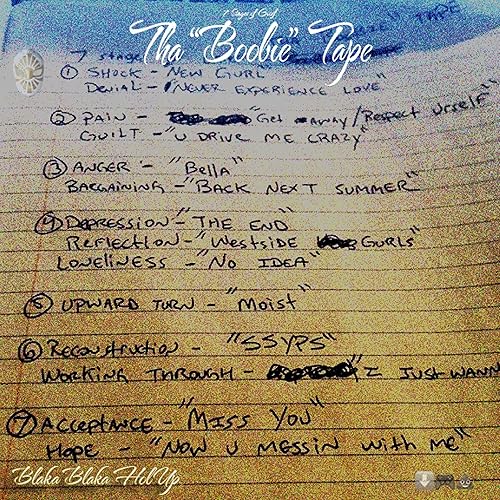 7 Stages of Grief
Tha "Boobie" Tape
7 stages TAPE
① SHOCK - "New Gurl"
DENIAL - "Never Experience Love"
② PAIN - "Get Away/Respect Urself"
GUILT - "U DRIVE ME CRAZY"
③ ANGER - "Bella"
BARGAINING - "BACK NEXT SUMMER"
④ DEPRESSION - "THE END"
REFLECTION - "Westside GURLS"
LONELINESS - "NO IDEA"
⑤ UPWARD TURN - "MOIST"
⑥ RECONSTRUCTION - "SSYPS"
WORKING THROUGH - "I JUST WANN
⑦ ACCEPTANCE - "MISS YOU"
HOPE - "NOW U MESSIN WITH ME"
Blaka Blaka Hol Up